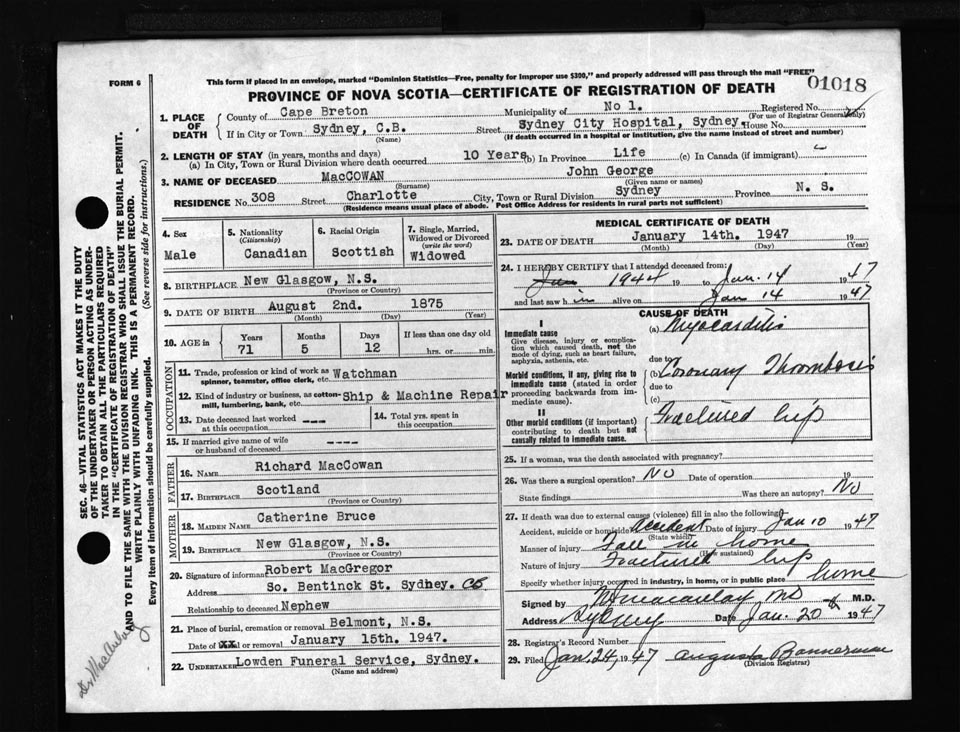 FORM 6
This form if placed in an envelope, marked "Dominion Statistics—Free, penalty for improper use $300," and properly addressed will pass through the mail "FREE"
PROVINCE OF NOVA SCOTIA—CERTIFICATE OF REGISTRATION OF DEATH
01018
1. PLACE OF DEATH
County of Cape Breton Municipality of No 1. Registered No.
(For use of Registrar General only)
If in City or Town Sydney, C.B. Street Sydney City Hospital, Sydney. House No.
(Name) (If death occurred in a hospital or institution, give the name instead of street and number)
2. LENGTH OF STAY (in years, months and days)
(a) In City, Town or Rural Division where death occurred 10 Years (b) In Province Life (c) In Canada (if immigrant)
3. NAME OF DECEASED MacCOWAN John George
(Surname) (Given name or names)
RESIDENCE No. 308 Street Charlotte City, Town or Rural Division Sydney Province N. S.
(Residence means usual place of abode. Post Office Address for residents in rural parts not sufficient)
4. Sex
Male
5. Nationality
(Citizenship)
Canadian
6. Racial Origin
Scottish
7. Single, Married, Widowed or Divorced
(write the word)
Widowed
8. BIRTHPLACE New Glasgow, N.S.
(Province or Country)
9. DATE OF BIRTH August 2nd. 1875
(Month) (Day) (Year)
10. AGE in Years Months Days If less than one day old
71 5 12 hrs. or min.
OCCUPATION
11. Trade, profession or kind of work as spinner, teamster, office clerk, etc. Watchman
12. Kind of industry or business, as cotton-mill, lumbering, bank, etc. Ship & Machine Repair
13. Date deceased last worked at this occupation ---
14. Total yrs. spent in this occupation
15. If married give name of wife or husband of deceased ----
FATHER
16. NAME Richard MacCowan
17. BIRTHPLACE Scotland
(Province or Country)
MOTHER
18. MAIDEN NAME Catherine Bruce
19. BIRTHPLACE New Glasgow, N.S.
(Province or Country)
20. Signature of informant Robert MacGregor
Address So. Bentinck St. Sydney. CB
Relationship to deceased Nephew
21. Place of burial, cremation or removal Belmont, N.S.
Date of XX or removal January 15th. 1947.
22. UNDERTAKER Lowden Funeral Service, Sydney.
(Name and address)
MEDICAL CERTIFICATE OF DEATH
23. DATE OF DEATH January 14th. 1947 19
(Month) (Day) (Year)
24. I HEREBY CERTIFY that I attended deceased from:
Jan 1944 19 to Jan. 14 1947
and last saw him alive on Jan 14 1947
CAUSE OF DEATH
I
Immediate cause
Give disease, injury or complication which caused death, not the mode of dying, such as heart failure, asphyxia, asthenia, etc.
(a) Myocarditis
due to
Morbid conditions, if any, giving rise to immediate cause (stated in order proceeding backwards from immediate cause).
(b) Coronary Thrombosis
due to
(c)
II
Other morbid conditions (if important) contributing to death but not causally related to immediate cause.
Fractured hip
25. If a woman, was the death associated with pregnancy?
26. Was there a surgical operation? NO Date of operation 19
State findings Was there an autopsy? No
27. If death was due to external causes (violence) fill in also the following:
Accident, suicide or homicide Accident Date of injury Jan 10 1947
(State which)
Manner of injury Fall in home
(How sustained)
Nature of injury Fractured hip
Specify whether injury occurred in industry, in home, or in public place home
Signed by Macaulay MD M.D.
Address Sydney Date Jan. 20 1947
28. Registrar's Record Number
29. Filed Jan. 24, 1947 Augusta Bannerman
(Division Registrar)
SEC. 46-VITAL STATISTICS ACT MAKES IT THE DUTY
OF THE UNDERTAKER OR PERSON ACTING AS UNDER-
TAKER TO OBTAIN ALL THE PARTICULARS REQUIRED
IN THE "CERTIFICATE OF REGISTRATION OF DEATH"
AND TO FILE THE SAME WITH THE DIVISION REGISTRAR WHO SHALL ISSUE THE BURIAL PERMIT.
WRITE PLAINLY WITH UNFADING INK. THIS IS A PERMANENT RECORD.
Every item of information should be carefully supplied. (See reverse side for instructions.)